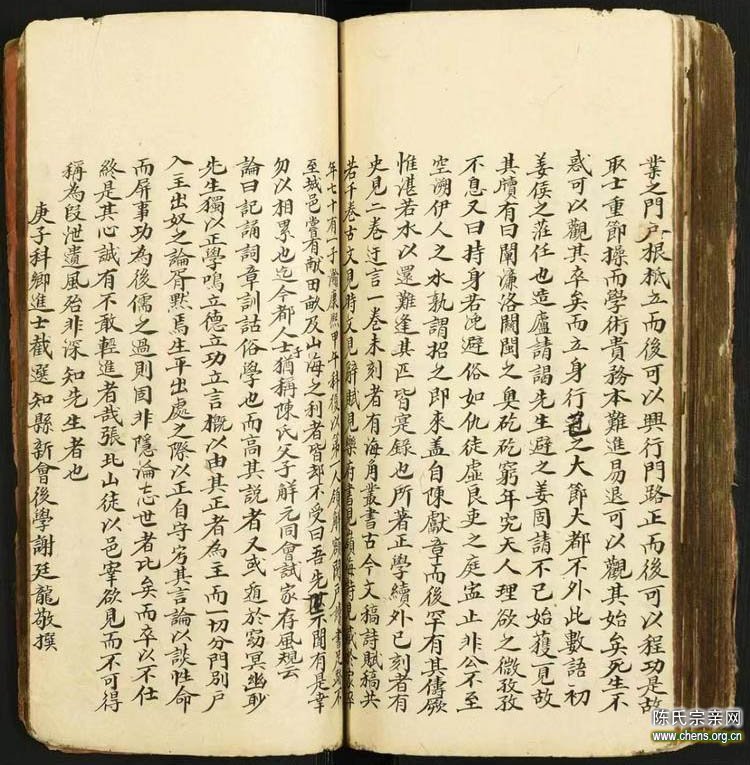 業之門戶根柢立而後可以興行門路正而後可以程功是故
取士重節操而學術貴務本難進易退可以觀其始矣死生不
惑可以觀其卒矣而立身行己之大節大都不外此數語初
姜侯之蒞任也造廬請謁先生避之姜固請不已始獲一見故
其牘有曰闡濂洛關閩之奧矻矻窮年究天人理欲之微孜孜
不息又曰持身若沱避俗如仇徒虛良吏之庭寔止非公不至
空溯伊人之水孰謂招之即來蓋自陳獻章而後罕有其儔厥
惟湛若水以還難逢其匹皆寔錄也所著正學續外已刻者有
史見二卷迂言一卷未刻者有海角叢書古今文稿詩賦稿共
若干卷古文見時文見解賦見樂府書見嶺海詩見
年七十有一子 康熙甲午科後以第 人領解額閉戶 書足 不
至城邑嘗有獻田畝及山海之利者皆却不受曰吾先 不聞有是幸
勿以相累也迄今都人士猶稱陳氏父子解元同會試家存風規云
論曰記誦詞章訓詁俗學也而高其說者又或遁於窈冥幽眇
先生獨以正學鳴立德立功立言概以由其正者為主而一切分門別戶
入主出奴之論胥默焉生平出處之際以正自守穷其言論以談性命
而屏事功為後儒之過則固非隱淪忘世者比矣而卒以不仕
終是其心誠有不敢輕進者哉張北山徒以邑宰欲見而不可得
稱為段泄遺風殆非深知先生者也
庚子科鄉進士截選知縣新會後學謝廷龍敬撰
陈氏宗亲网
www.chens.org.cn